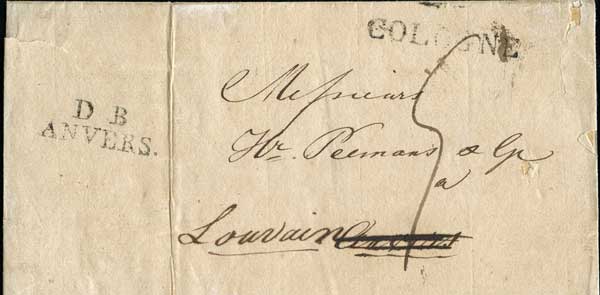 COLOGNE
D B
ANVERS.
Messieurs
Hr. Peemans & Cp
a
Louvain